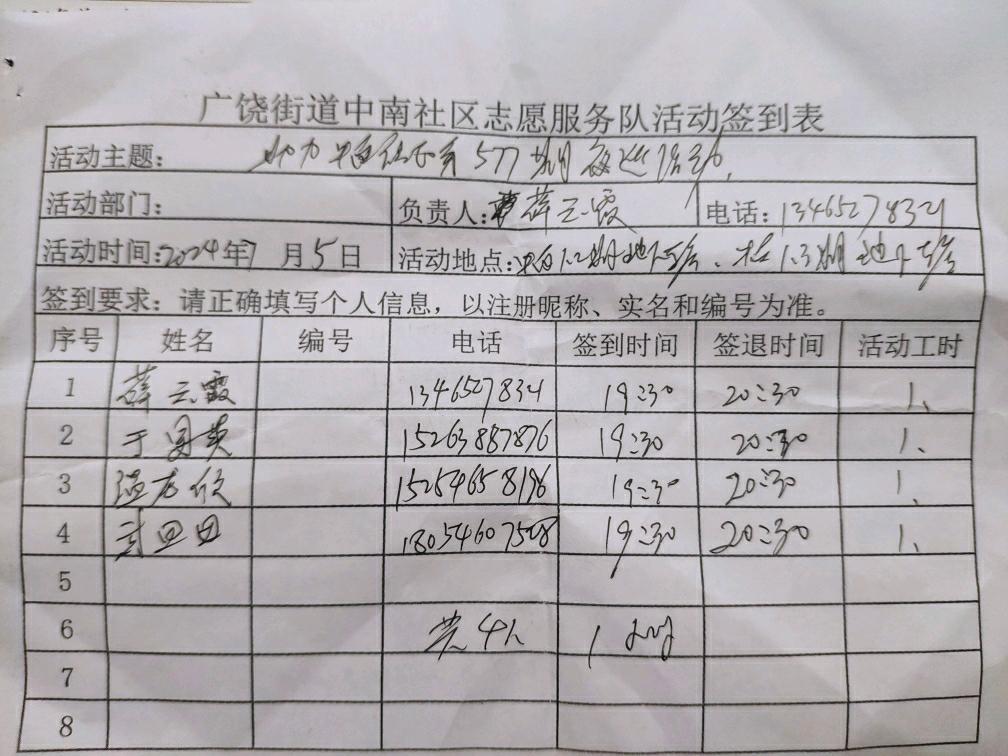 广饶街道中南社区志愿服务队活动签到表
活动主题： 助力中南社区第577期夜巡活动
活动部门： 负责人：薛云霞 电话：13465278321
活动时间：2024年7月5日 活动地点：中南1.2期地下车库、 1.3期地下车库
签到要求：请正确填写个人信息，以注册昵称、实名和编号为准。
序号 姓名 编号 电话 签到时间 签退时间 活动工时
1 薛云霞 13465278321 19:30 20:30 1、
2 于 英 15263887876 19:30 20:30 1、
3 欣 15254658196 19:30 20:30 1、
4 田田 18054607528 19:30 20:30 1、
5
6 共4人 1小时
7
8